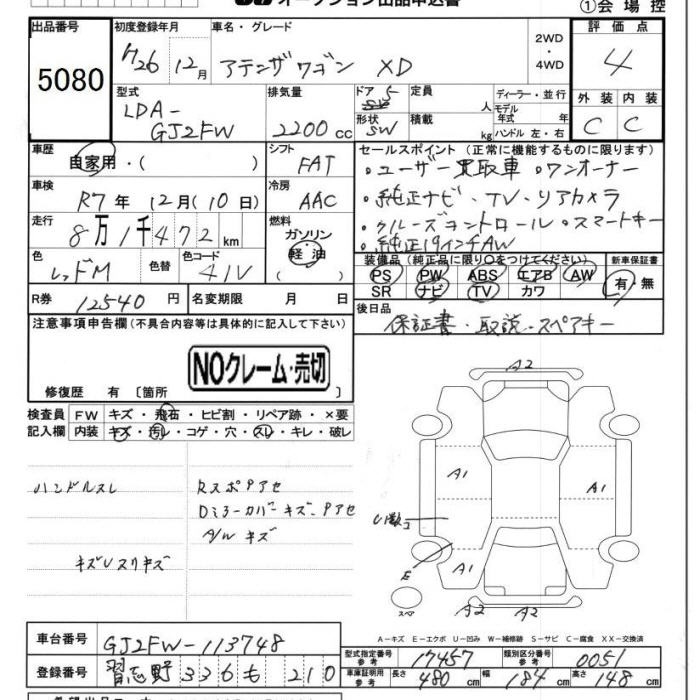 オークション出品申込書
①会場控
出品番号
5080
初度登録年月
H26年 12月
車名・グレード
アテンザワゴン XD
2WD
・
4WD
評価点
4
外装 内装
C C
型式
LDA-
GJ2FW
排気量
2200cc
ドア 5
形状 SW
定員 人
積載 kg
ディーラー・並行
モデル年式 年
ハンドル 左・右
車歴
自家用・( )
シフト
FAT
車検
R7年 12月(10日)
冷房
AAC
走行
8万1千472km
燃料
ガソリン
軽油
色
レッドM
色替
色コード
41V
R券
12540円
名変期限 月 日
セールスポイント (正常に機能するものに限ります)
・ユーザー買取車 ・ワンオーナー
・純正ナビ・TV・リアカメラ
・クルーズコントロール・スマートキー
・純正19インチAW
装備品(純正品に限り○をつけてください)
新車保証書
PS PW ABS エアB AW
SR ナビ TV カワ
有・無
後日品
保証書・取説・スペアキー
注意事項申告欄(不具合内容等は具体的に記入して下さい)
NOクレーム・売切
修復歴 有 〔箇所 〕
検査員
記入欄
FW キズ・飛石・ヒビ割・リペア跡・×要
内装 キズ・汚レ・コゲ・穴・スレ・キレ・破レ
ハンドルスレ
キズUスリキズ
RスポPアセ
Dミラーカバーキズ-Pアセ
A/Wキズ
A2
A1
A1
U1数コ
E
A1
スペア
A2
A2
A-キズ E-エクボ U-凹み W-補修跡 S-サビ C-腐食 XX-交換済
車台番号
GJ2FW-113748
登録番号
習志野 336 も 210
型式指定番号
参考
17457
類別区分番号
参考
0051
車庫証明用
参考
長さ 480cm
幅 184cm
高さ 148cm